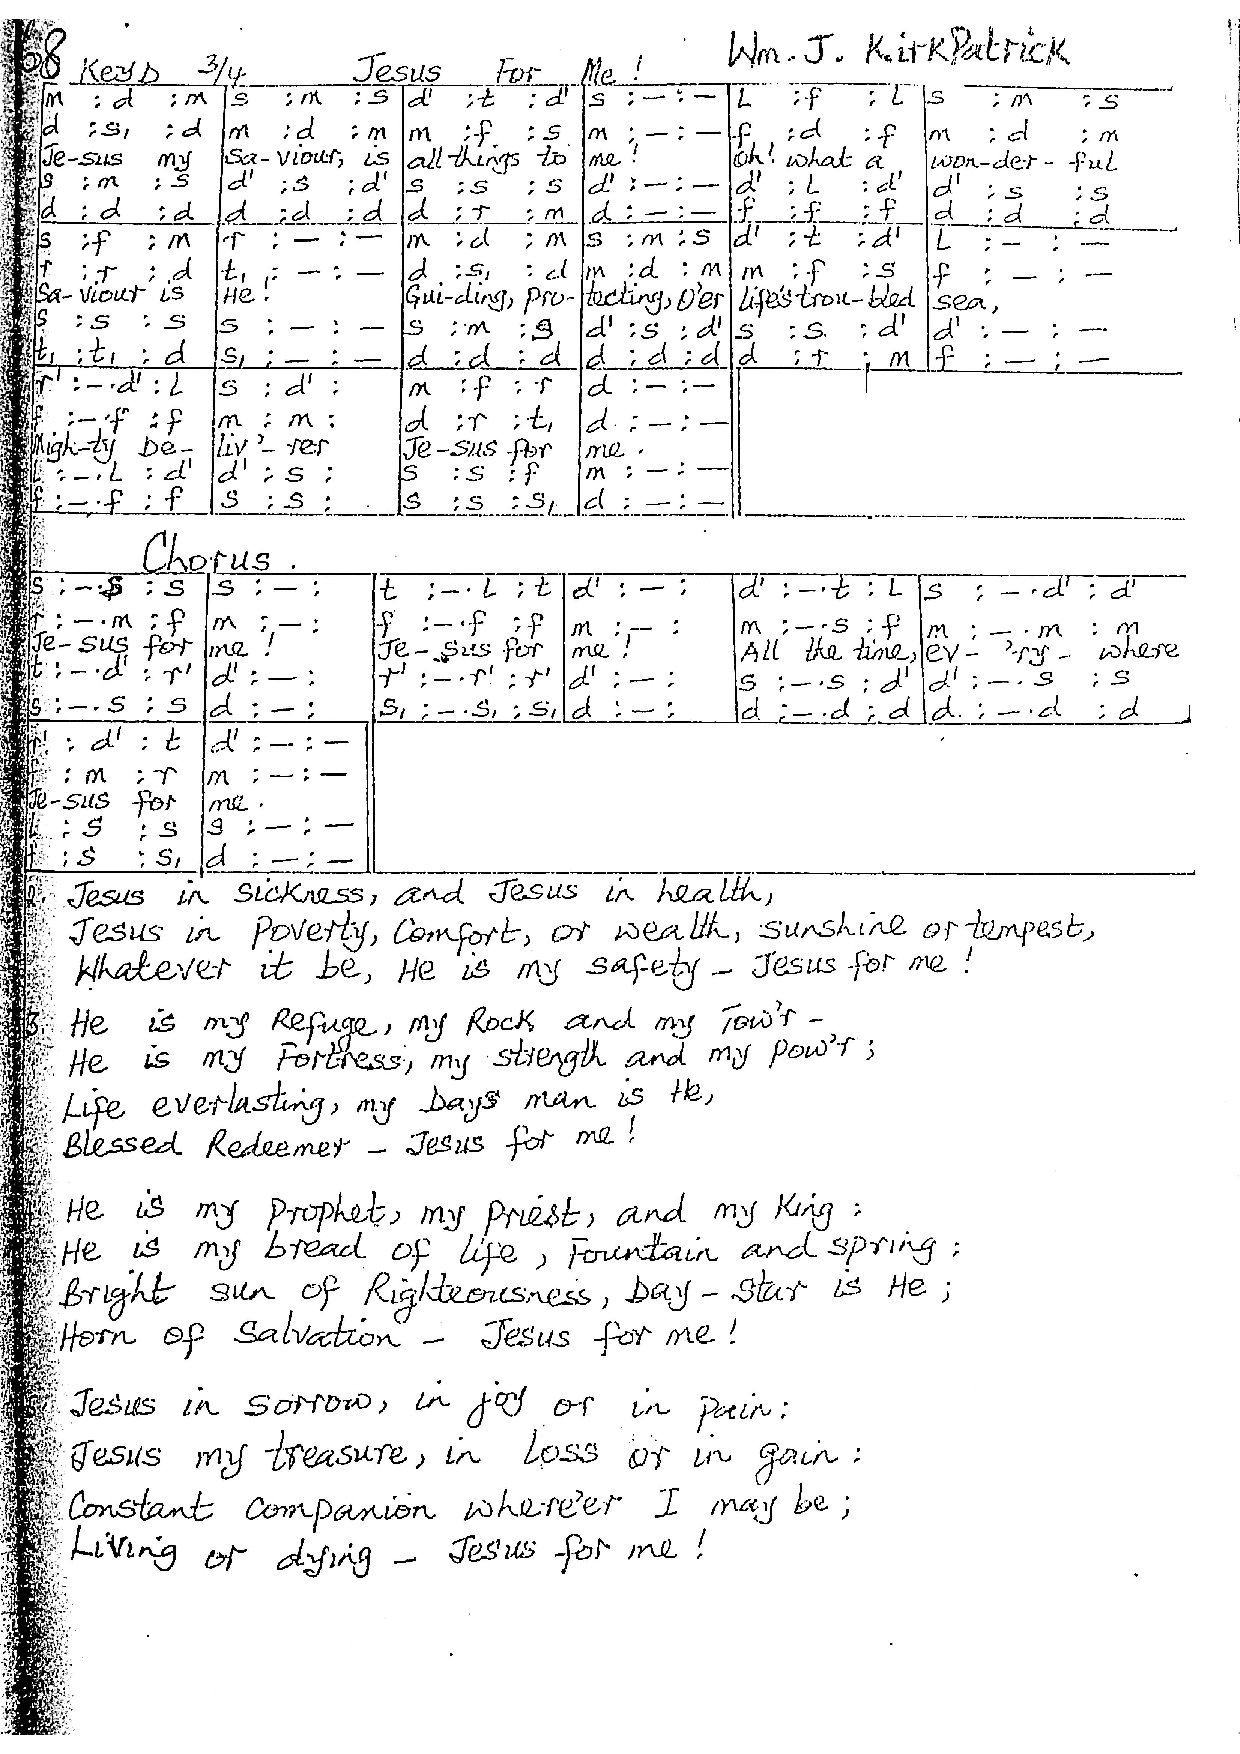 68 Key D 3/4 Jesus For Me! Wm. J. KirkPatrick
m : d : m | s : m : s | d' : t : d' | s : — : — | L : f : L | s : m : s
d : s, : d | m : d : m | m : f : s | m : — : — | f : d : f | m : d : m
Je-sus my | Sa-viour, is | all things to | me! | Oh! what a | won-der-ful
s : m : s | d' : s : d' | s : s : s | d' : — : — | d' : L : d' | d' : s : s
d : d : d | d : d : d | d : r : m | d : — : — | f : f : f | d : d : d
s : f : m | r : — : — | m : d : m | s : m : s | d' : t : d' | L : — : —
r : r : d | t, : — : — | d : s, : d | m : d : m | m : f : s | f : — : —
Sa-viour is | He! | Gui-ding, pro- | tecting, O'er | life's trou-bled | sea,
s : s : s | s : — : — | s : m : s | d' : s : d' | s : s : d' | d' : — : —
t, : t, : d | s, : — : — | d : d : d | d : d : d | d : r : m | f : — : —
r' : — . d' : L | s : d' : | m : f : r | d : — : —
f : — . f : f | m : m : | d : r : t, | d : — : —
Migh-ty De- | liv'-rer | Je-sus for | me.
: — . L : d' | d' : s : | s : s : f | m : — : —
f : — . f : f | s : s : | s : s : s, | d : — : —
Chorus.
s : — . s : s | s : — : | t : — . L : t | d' : — : | d' : — . t : L | s : — . d' : d'
r : — . m : f | m : — : | f : — . f : f | m : — : | m : — . s : f | m : — . m : m
Je-sus for | me! | Je-sus for | me! | All the time, | ev-'ry-where
t : — . d' : r' | d' : — : | r' : — . r' : r' | d' : — : | s : — . s : d' | d' : — . s : s
s : — . s : s | d : — : | s, : — . s, : s, | d : — : | d : — . d : d | d : — . d : d
r' : d' : t | d' : — : —
: m : r | m : — : —
Je-sus for | me.
: s : s | s : — : —
: s : s, | d : — : —
2. Jesus in sickness, and Jesus in health,
Jesus in Poverty, Comfort, or wealth, sunshine or tempest,
Whatever it be, He is my safety – Jesus for me!
3. He is my Refuge, my Rock and my Tow'r –
He is my Fortress, my strength and my pow'r;
Life everlasting, my Days man is He,
Blessed Redeemer – Jesus for me!
He is my Prophet, my priest, and my King:
He is my bread of life, Fountain and spring;
Bright sun of Righteousness, Day-Star is He;
Horn of Salvation – Jesus for me!
Jesus in sorrow, in joy or in pain:
Jesus my treasure, in loss or in gain:
Constant companion where'er I may be;
Living or dying – Jesus for me!